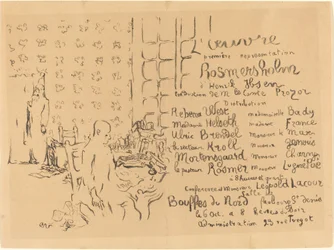 L'œuvre
première représentation
Rosmersholm
de Henrik Ibsen
traduction de M. le Comte Prozor
Distribution
Rebecca West mademoiselle Bady
Madame Helseth madame France
Ulric Brendel Monsieur de Max
le recteur Kroll Monsieur
Mortensgaard Monsieur Charny
le pasteur Rosmer Monsieur Lugné Poe
à 8 heures
Conférence de Monsieur Léopold Lacour
Salle des
Bouffes du Nord faubourg St Denis
6 Oct. à 8 heures du Soir
administration 23 rue Turgot